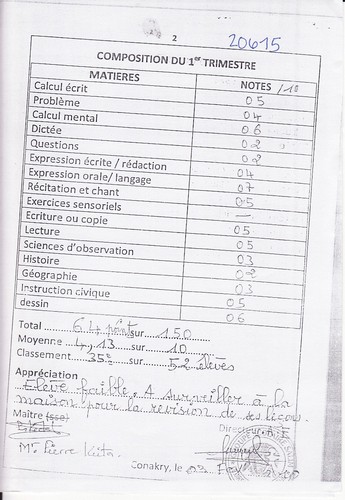 2
20615
COMPOSITION DU 1er TRIMESTRE
MATIERES NOTES /10
Calcul écrit 05
Problème 04
Calcul mental 06
Dictée 02
Questions 02
Expression écrite / rédaction 04
Expression orale/ langage 07
Récitation et chant 05
Exercices sensoriels —
Ecriture ou copie 05
Lecture 05
Sciences d'observation 03
Histoire 02
Géographie 03
Instruction civique 05
dessin 06
Total 64 points sur 150
Moyenne 4,13 sur 10
Classement 35e sur 52 élèves
Appréciation
Elève faible. A surveiller à la
maison pour la revision de ses leçons.
Maître (sse) Directeur
Mr. Pierre Keita.
Conakry, le 03